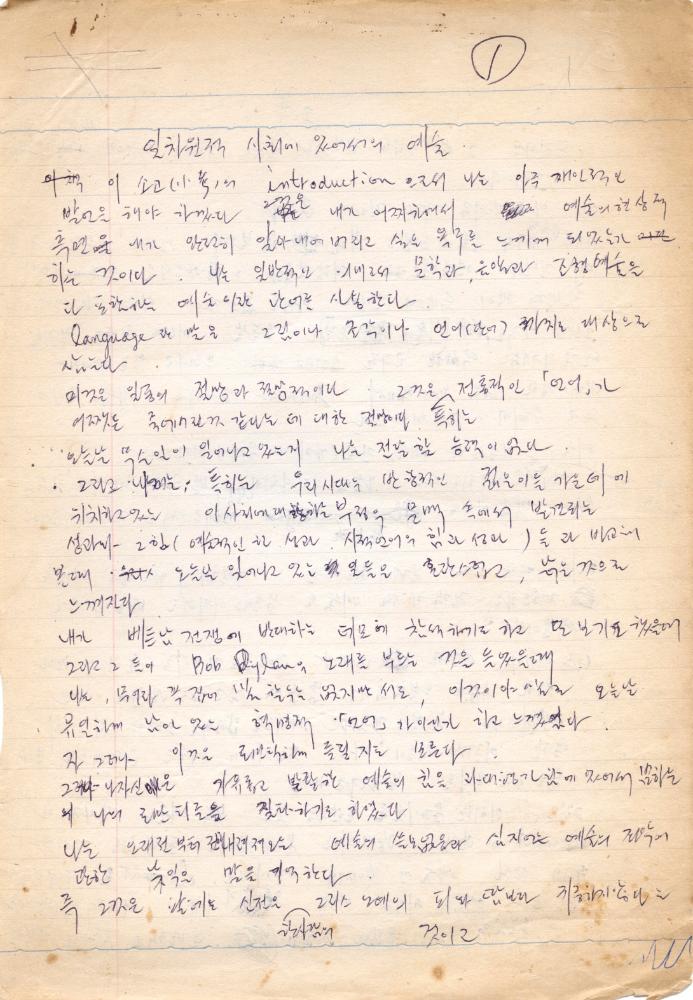 ①
일차원적 사회에 있어서의 예술.
이 소고(小考)의 introduction 으로서 나는 아주 개인적인
발언을 해야 하겠다 그것은 내가 어찌하여서 예술의 현상적
측면을 내가 알아내어 버리고 싶은 욕구를 느끼게 되었는가
하는 것이다. 나는 일반적인 의미로서 문학과, 음악과 조형예술을
다 포함하는 예술이란 단어를 사용한다.
language란 말은 그림이나 조각이나 언어(단어) 까지도 대상으로
삼는다
이것은 일종의 절망과 절망적이다 그것은 전통적인 「언어」가
어쨌든 죽어버린 것 같다는 데 대한 절망이다 특히는
오늘날 무슨일이 일어나고 있는지 나는 전달할 능력이 없다.
그리고 특히는 우리 시대는 반항적인 젊은이들 가운데에
위치하고 있는 이 사회에 대한 부정의 문맥 속에서 발견되는
성과와 그 힘(예술적인 한 성과. 시적언어의 힘과 성과) 들과 비교해
볼때 오늘날 일어나고 있는 일들은 혼란스럽고, 낡은 것으로
느껴진다.
내가 베트남 전쟁에 반대하는 데모에 참석하기도 하고 또 보기도 했을때
그리고 그들이 Bob Dylan의 노래를 부르는 것을 들었을때
나는, 무어라 꼭 집어 말할 수는 없지만서도, 이것이야말로 오늘날
유일하게 남아 있는 혁명적 「언어」가 아닌가 하고 느꼈었다.
자 그러나 이것은 로맨틱하게 들릴지도 모른다.
그러나 나 자신은 자유롭고 발랄한 예술의 힘을 과대평가함에 있어서
나의 로맨티즘을 질타하기도 하였다
나는 오래전부터 전해내려져오는 예술의 쓸모없음과 심지어는 예술의 죄악에
관한 낯익은 말을 기억한다.
즉 그것은 신전은 그리스 노예의 피와 땀보다 귀중하지 않다는
것이고